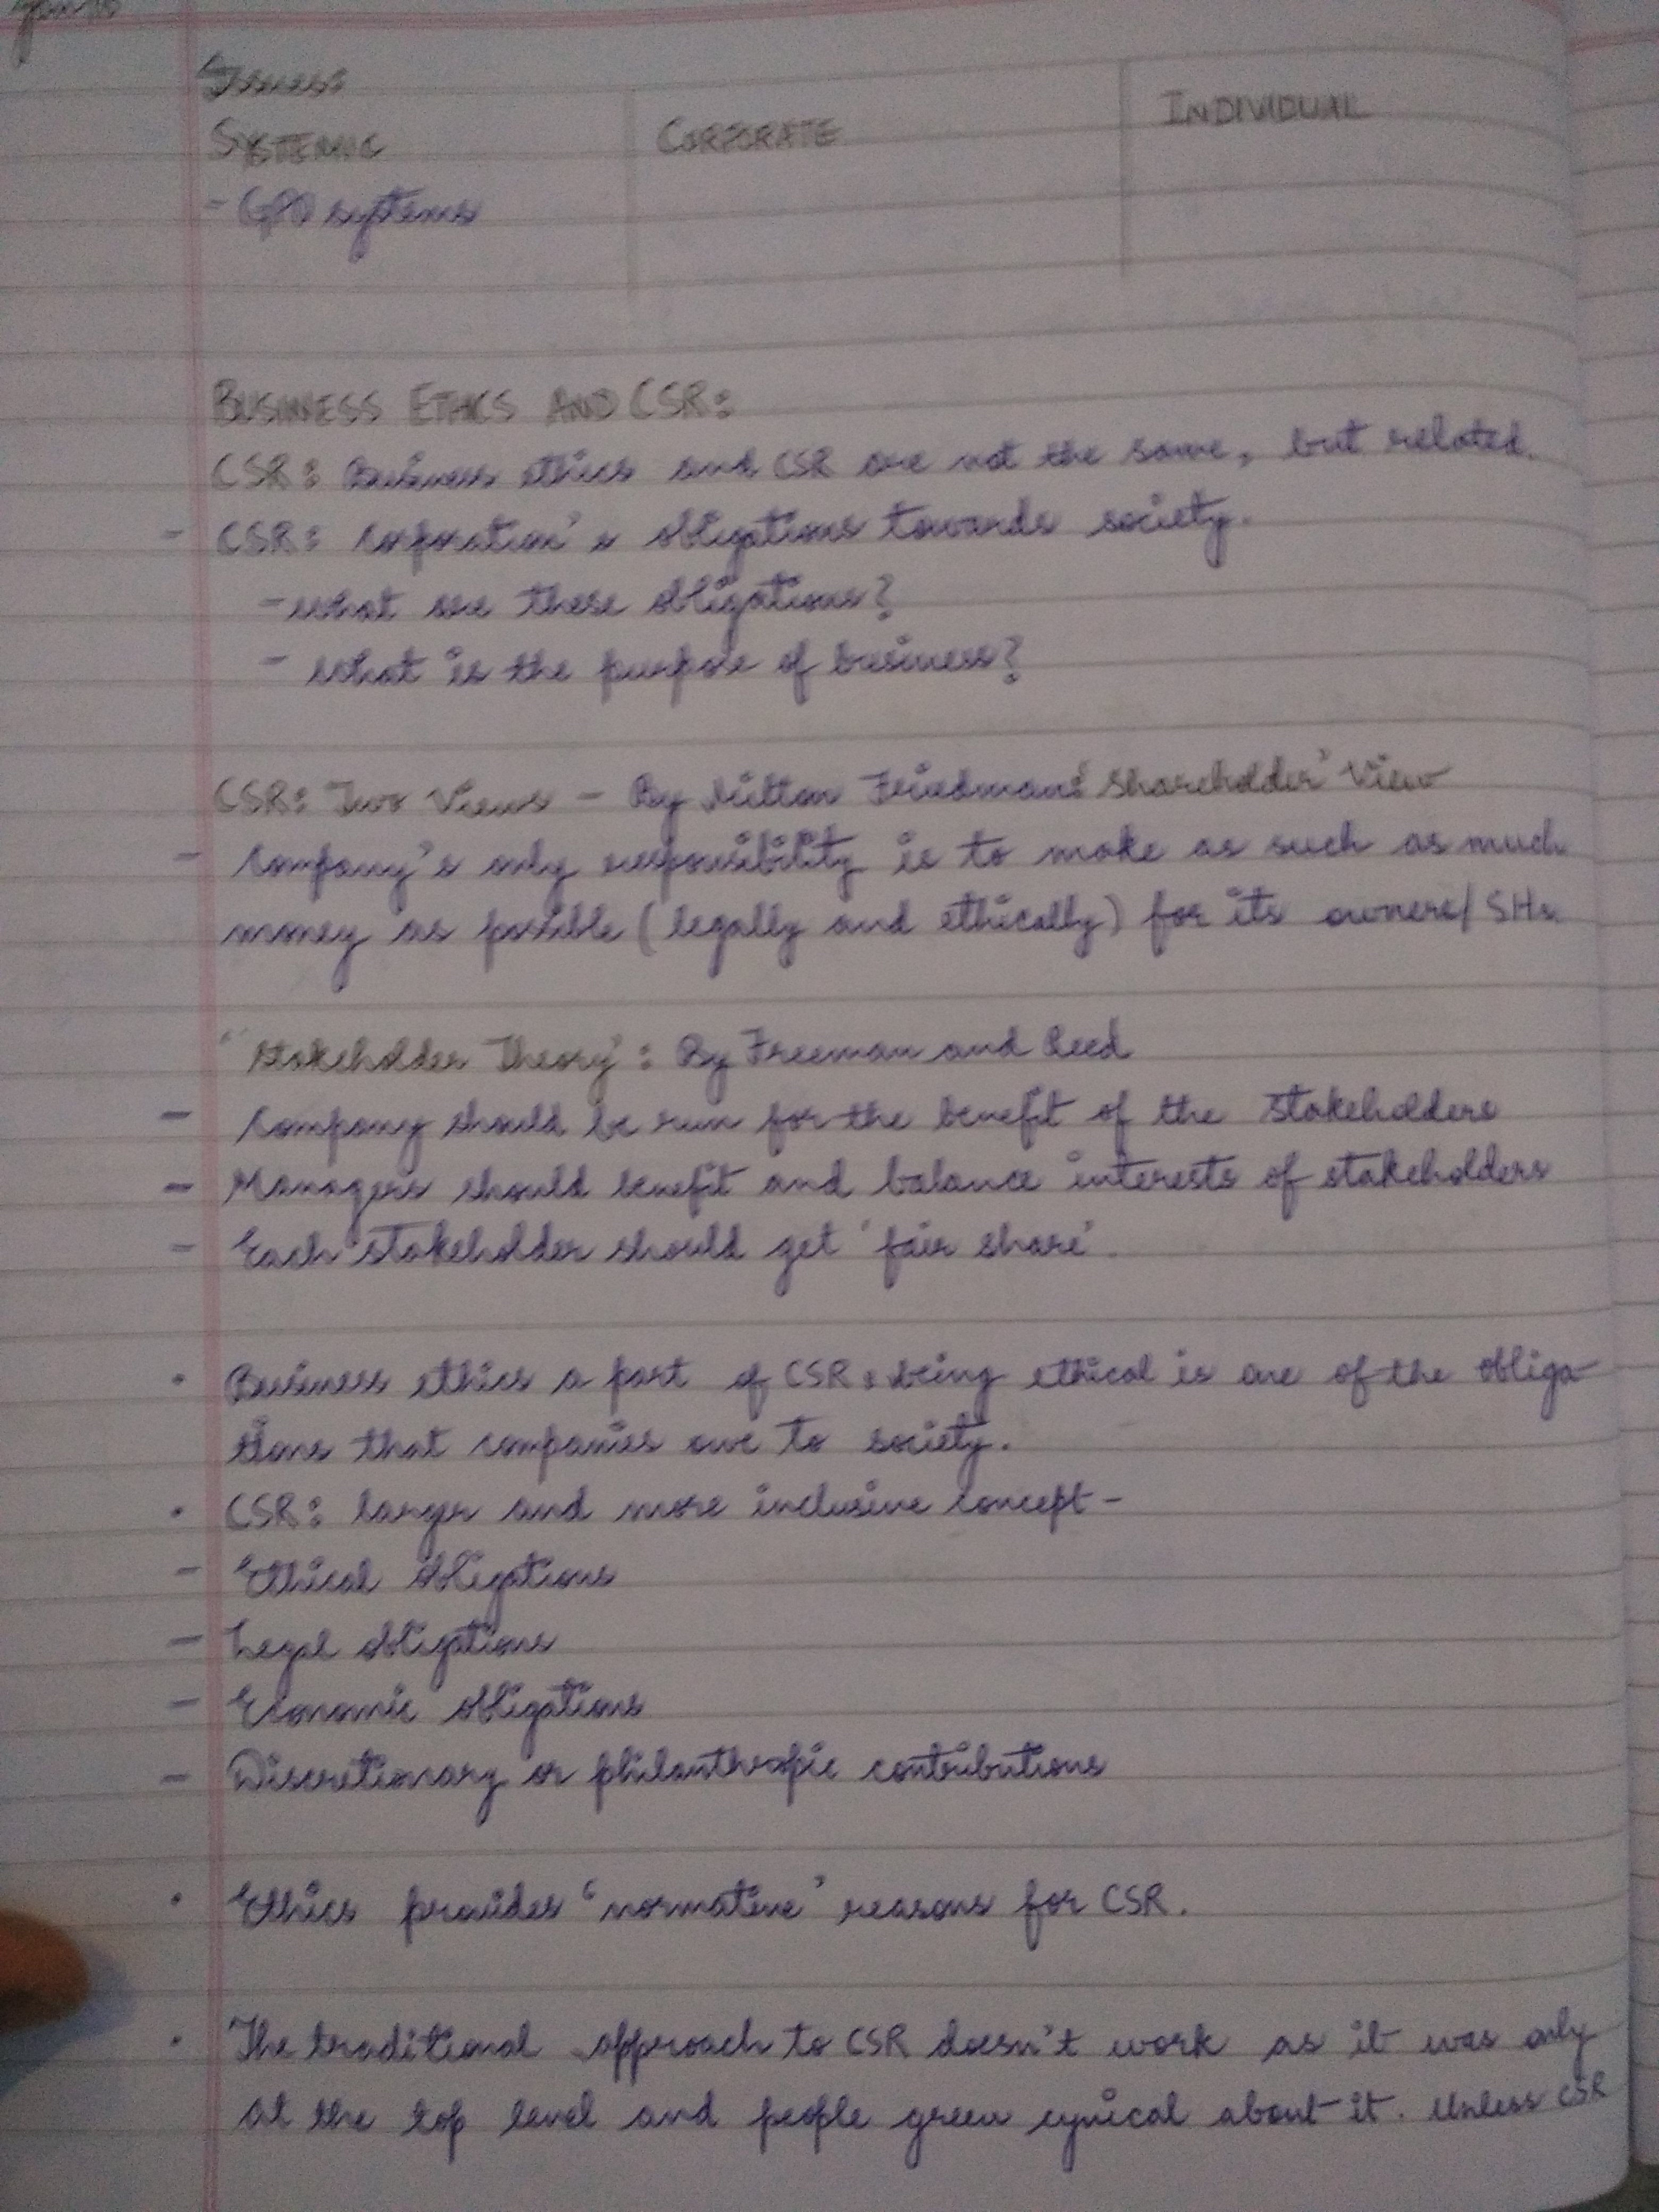 Issues:
SYSTEMIC CORPORATE INDIVIDUAL
- systems
BUSINESS ETHICS AND CSR:
CSR: Business ethics and CSR are not the same, but related.
- CSR: Corporation's obligations towards society.
- what are these obligations?
- What is the purpose of business?
CSR: Two Views - By Milton Friedman: 'Shareholder' View
- Company's only responsibility is to make as such as much
money as possible (legally and ethically) for its owners/ SHs.
'Stakeholder Theory': By Freeman and Reed
- Company should be run for the benefit of the stakeholders
- Managers should benefit and balance interests of stakeholders
- Each stakeholder should get 'fair share'.
• Business ethics a part of CSR: being ethical is one of the obliga-
tions that companies owe to society.
• CSR: larger and more inclusive concept -
- Ethical obligations
- Legal obligations
- Economic obligations
- Discretionary or philanthropic contributions
• Ethics provides 'normative' reasons for CSR.
• The traditional approach to CSR doesn't work as it was only
at the top level and people grew cynical about it. Unless CSR